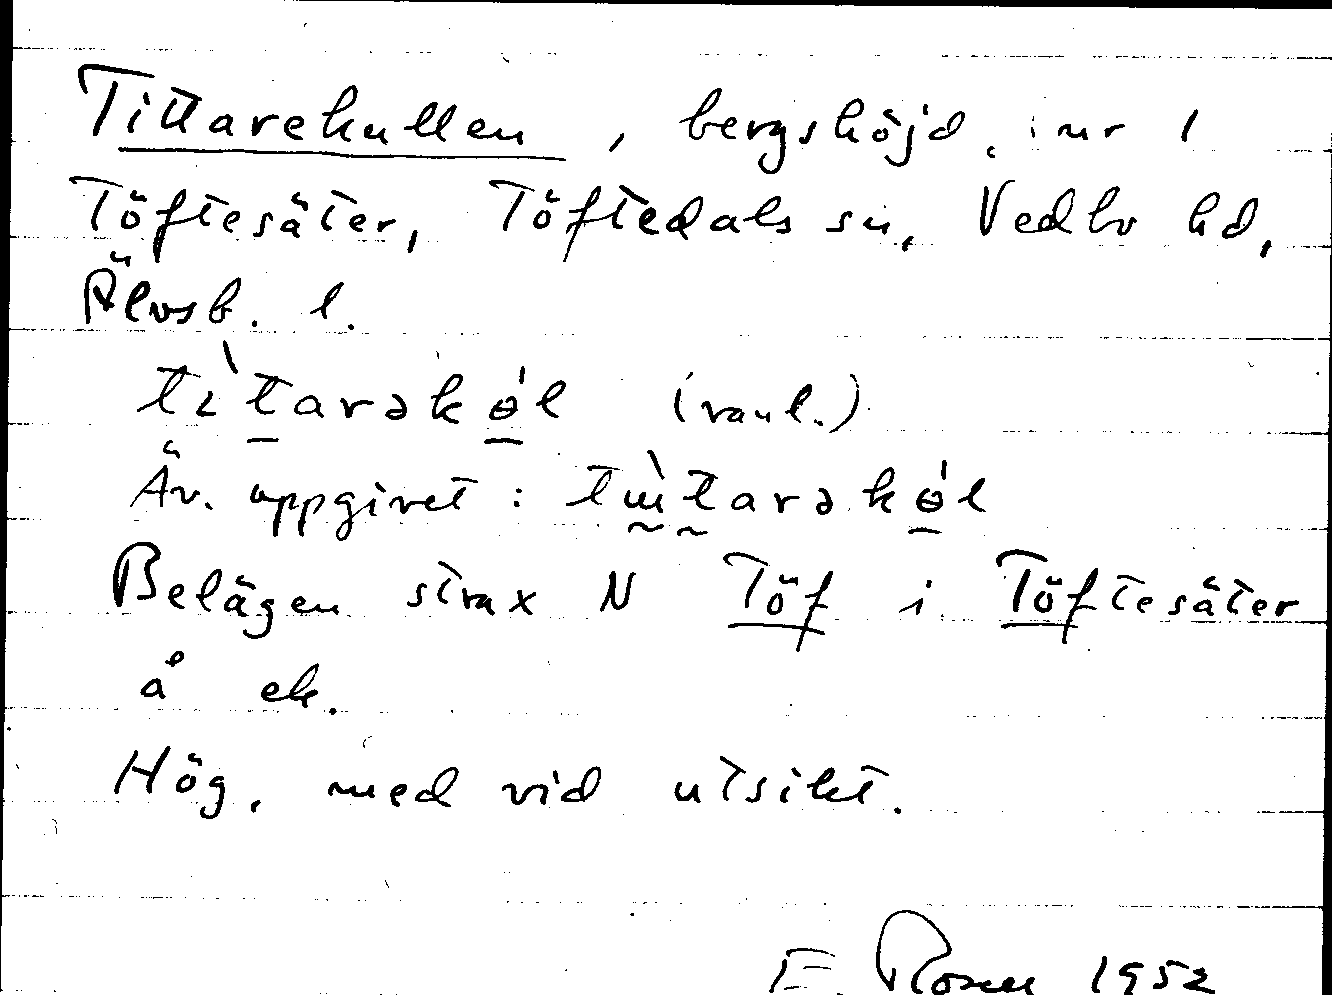 Tittarekullen, bergshöjd, i nr 1
Töftesäter, Töftedals sn, Vedbo hd,
Älvsb. l.
(vanl.)
Äv. uppgivet:
Belägen strax N Töf i Töftesäter
å ek.
Hög, med vid utsikt.
E. Rosell 1952